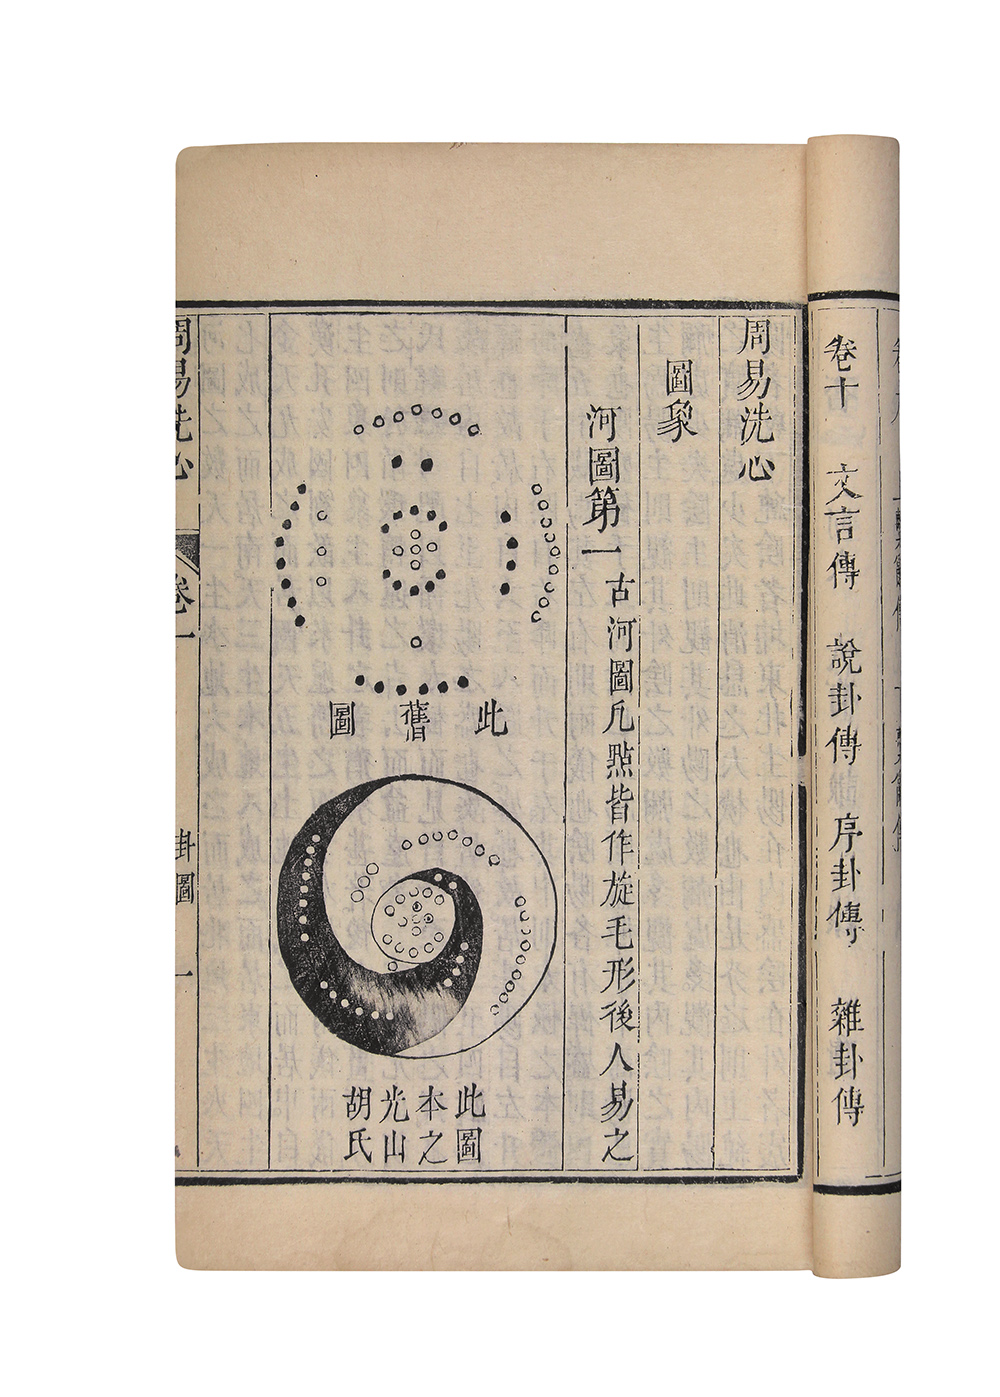 卷十　文言傳　說卦傳　序卦傳　雜卦傳
周易洗心
圖象
河圖第一　古河圖凡點皆作旋毛形後人易之
此舊圖
此圖
本之
光山
胡氏
周易洗心　卷一　卦圖　一